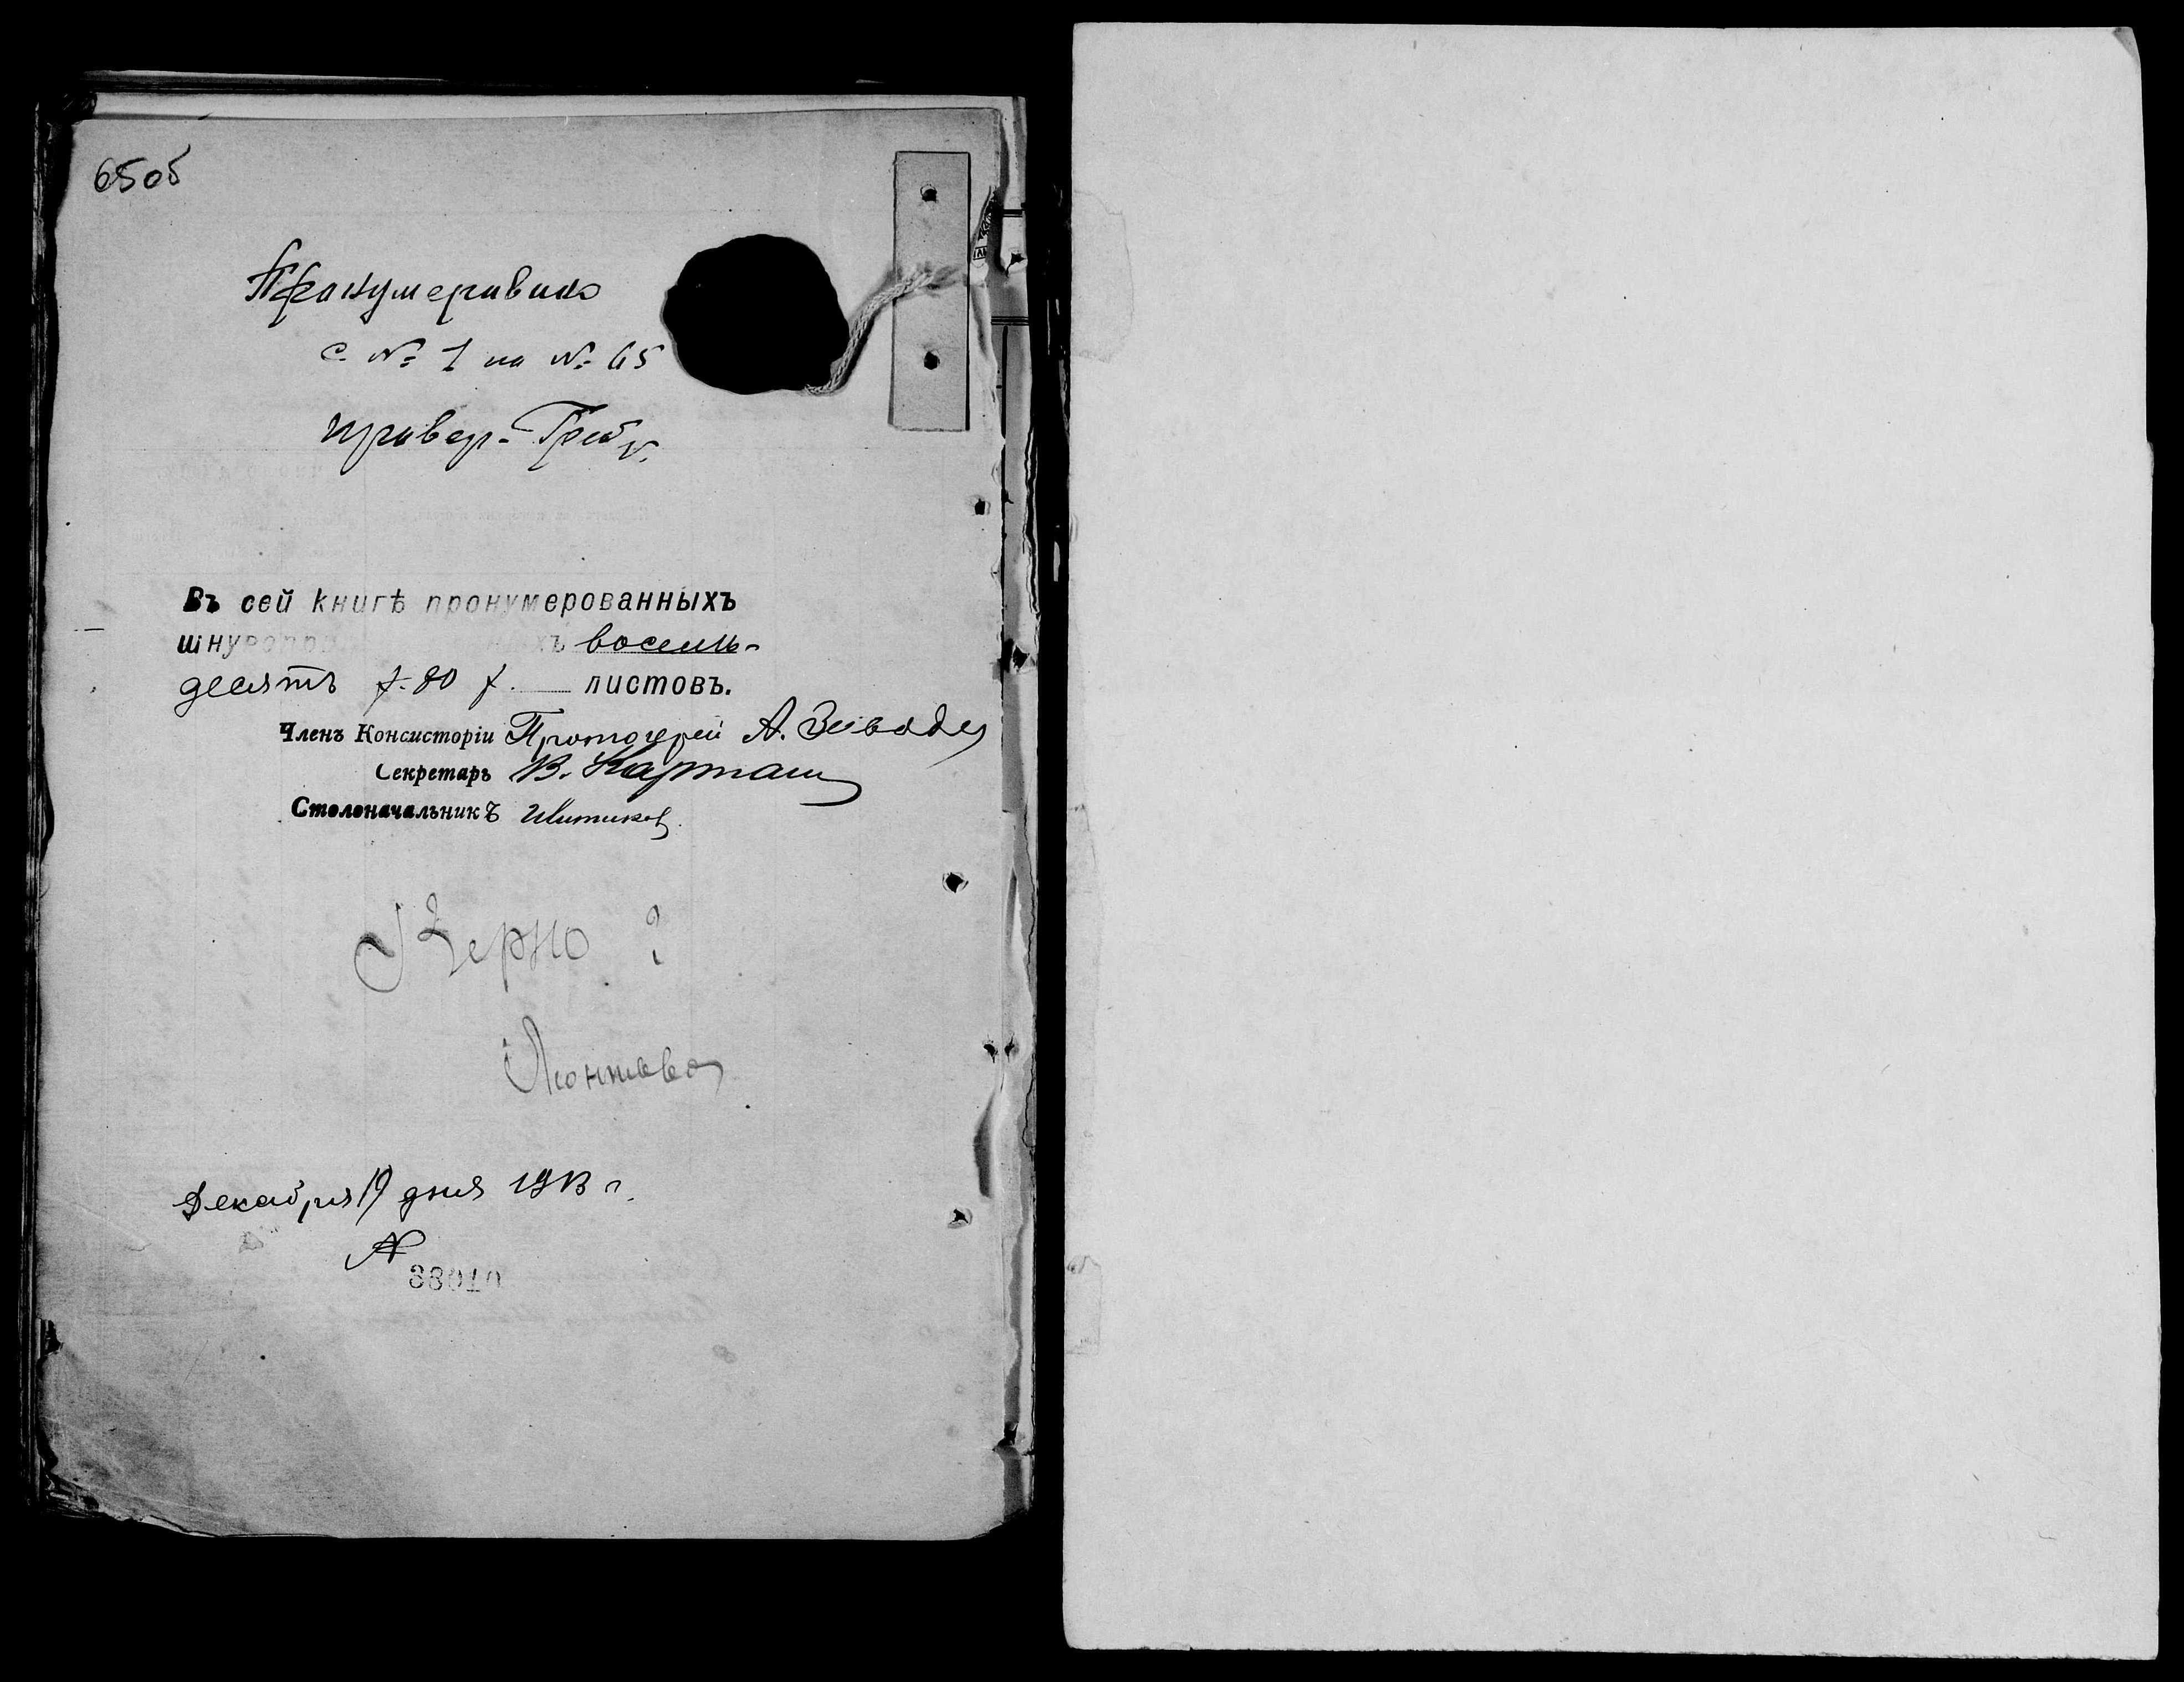 65об
Пронумеровано
с № 1 по № 65
провер.
Въ сей книгѣ пронумерованныхъ
восемь-
десятъ 80 листовъ.
Членъ Консисторіи Протоіерей А.
Секретарь В. Карташ
Столоначальникъ
Верно:
Декабря 19 дня 1913 г.
№
38010